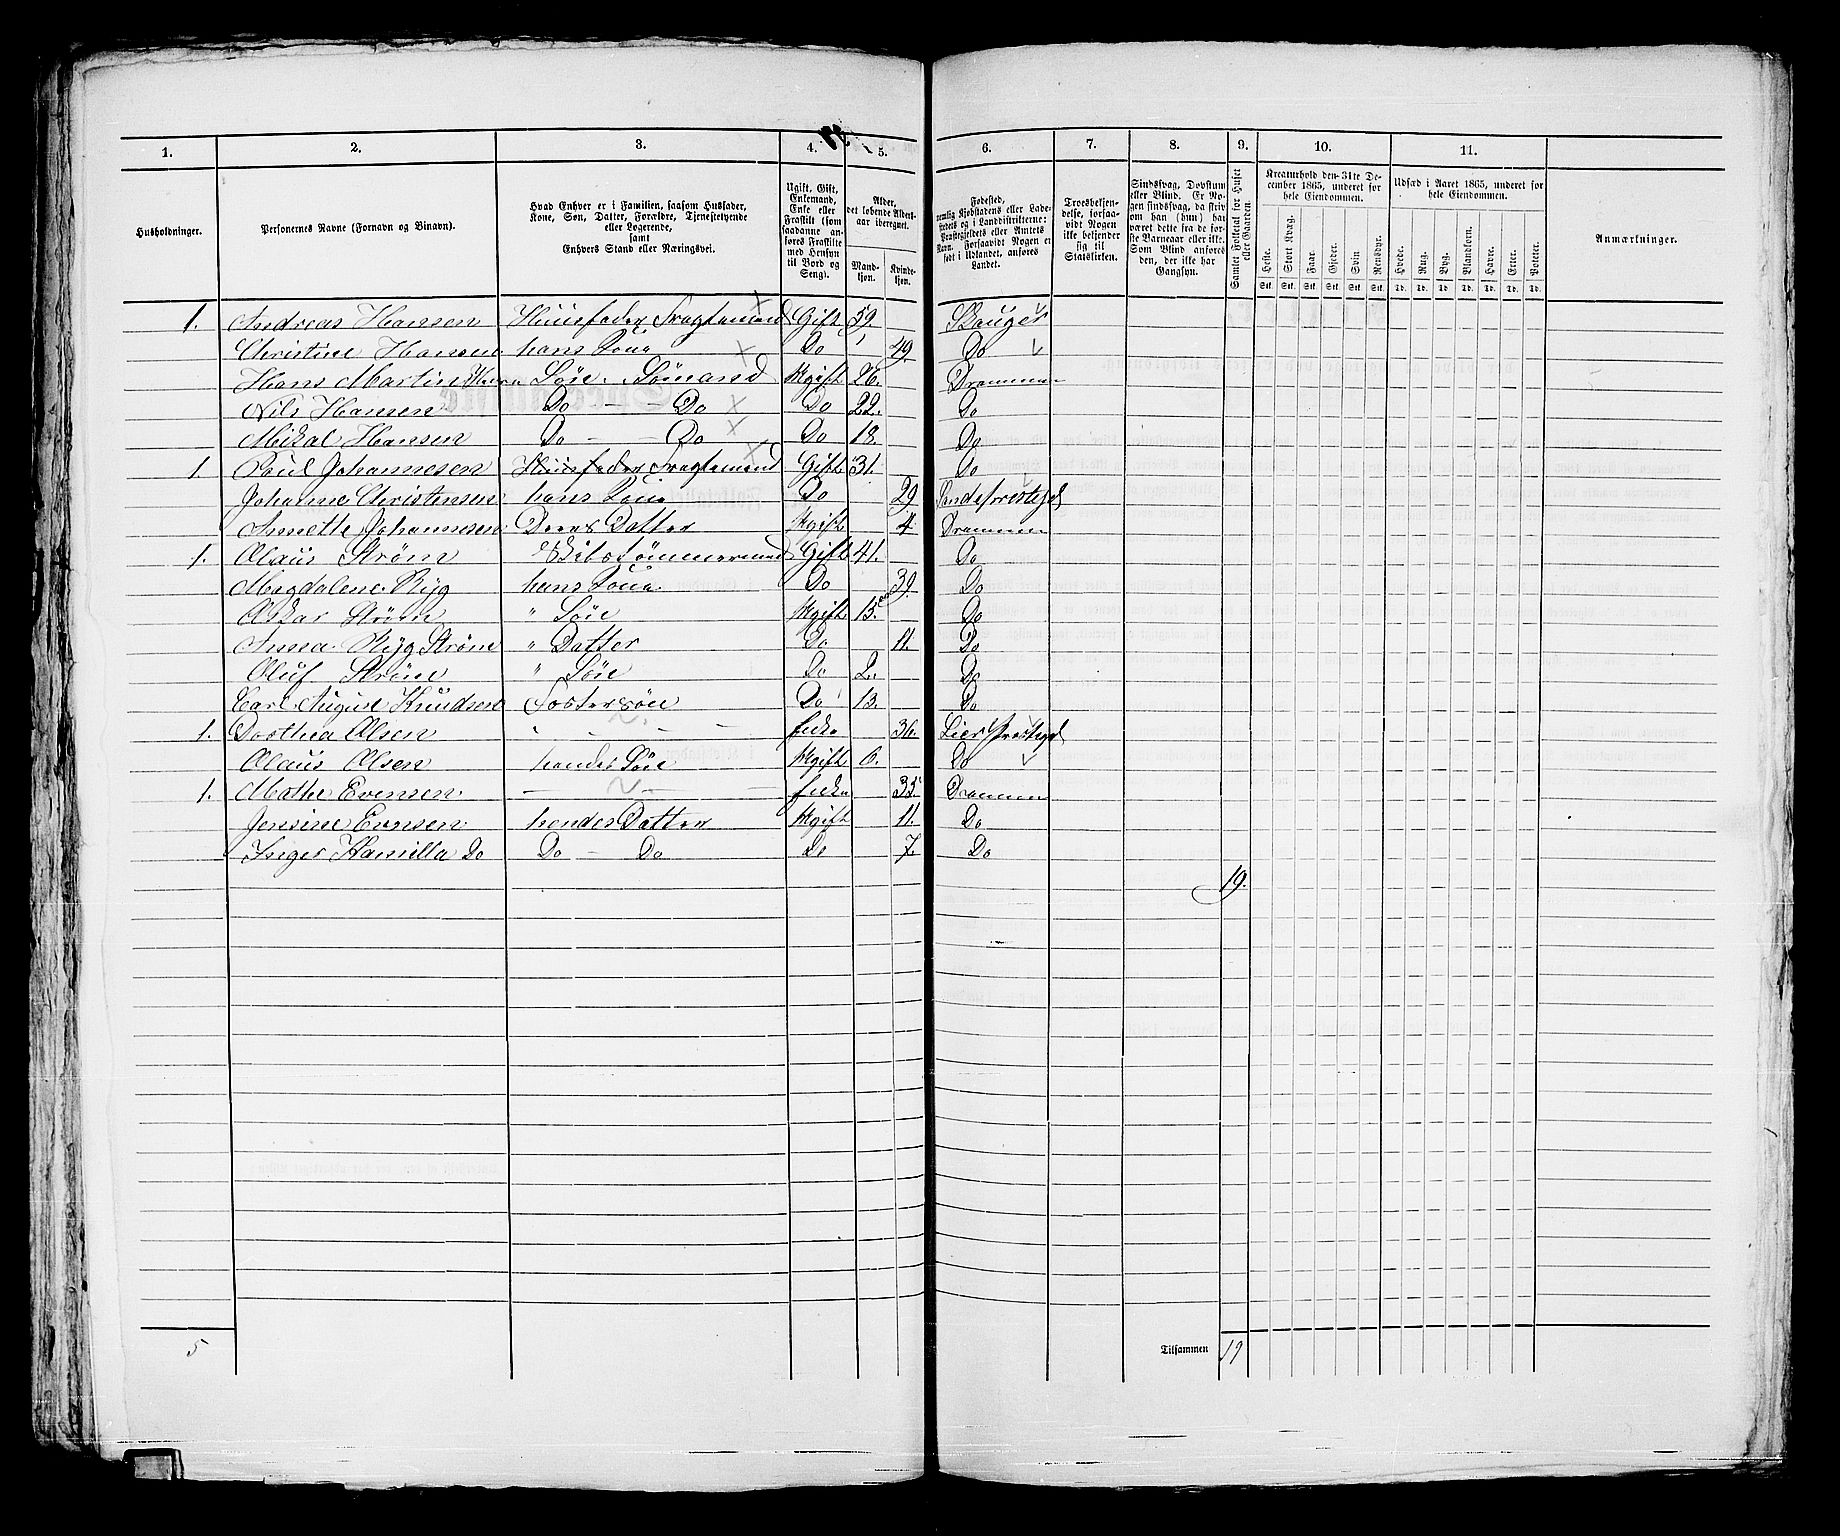 1. 2. 3. 4. 5. 6. 7. 8. 9. 10. 11.
Husholdninger.
Personernes Navne (Fornavn og Binavn).
Hvad Enhver er i Familien, saasom Husfader, Kone, Søn, Datter, Forældre, Tjenestetyende eller Logerende, samt Enhvers Stand eller Næringsvei.
Ugift, Gift, Enkemand, Enke eller Fraskilt (som saadanne anføres Fraskilte med Hensyn til Bord og Seng).
Alder, det løbende Aldersaar iberegnet.
Mandkjøn. Kvindekjøn.
Fødested, nemlig Kjøbstadens eller Ladestedets og i Landdistrikterne: Præstegjeldets eller Amtets Navn. Forsaavidt Nogen er født i Udlandet, anføres Landet.
Troesbekjendelse, forsaavidt Nogen ikke bekjender sig til Statskirken.
Sindssvag, Døvstum eller Blind. Er Nogen sindssvag, da skrives om han (hun) har været dette fra de første Barneaar eller ikke. Som Blind anføres den, der ikke har Gangsyn.
Samlet Folketal for Huset eller Gaarden.
Kreaturhold den 31te December 1865, underet for hele Eiendommen.
Heste. Stort Kvæg. Faar. Gjeder. Svin. Rensdyr.
Stk. Stk. Stk. Stk. Stk. Stk.
Udsæd i Aaret 1865, underet for hele Eiendommen.
Hvede. Rug. Byg. Blandkorn. Havre. Erter. Poteter.
Td. Td. Td. Td. Td. Td. Td.
Anmærkninger.
1. Andreas Hansen Huusfader Fragtemand Gift 59. Skauger
Christine Hansen hans Kone Do 49. Do
Hans Martin Hansen Søn. Sømand Ugift 26. Drammen
Nils Hansen Do - - Do Do 22. Do
Mikal Hansen Do - - Do Do 18. Do
1. Poul Johannesen Huusfader Fragtemand Gift 31. Do
Johanne Christensen hans Kone Do 29 Sandeprestegel
Anette Johannesen Deres Datter Ugift 4 Drammen
1. Olaus Strøm Skibstømmermand Gift 41. Do
Magdalene Ryg hans Kone Do 39. Do
Oskar Strøm " Søn Ugift 15. Do
Anna Ryg Strøm " Datter Do 11. Do
Oluf Strøm " Søn Do 2. Do
Carl August Knudsen Fostersøn Do 13. Do
1. Dorthea Olsen " - - - Enke 36. Lier Prestegel
Olaus Olsen hendes Søn Ugift 6. Do
1. Mathe Evensen - - - - Enke 35 Drammen
Jensine Evensen hendes Datter Ugift 11. Do
Inger Hamilla Do Do - Do Do 7. Do
19.
5 Tilsammen 19